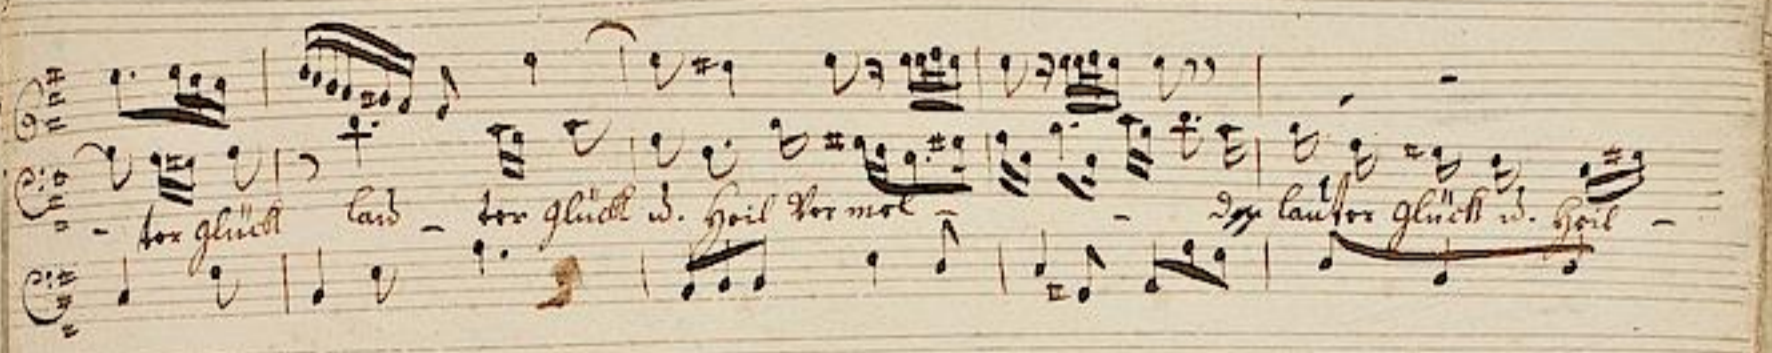 - ter glück lau - ter glück u. Heil Ver mel - - den lauter glück u. Heil -